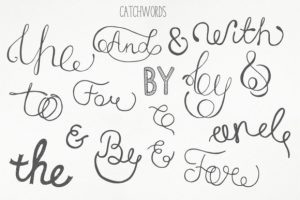 CATCHWORDS
the And & With
to For BY by &
& and
the & By & For